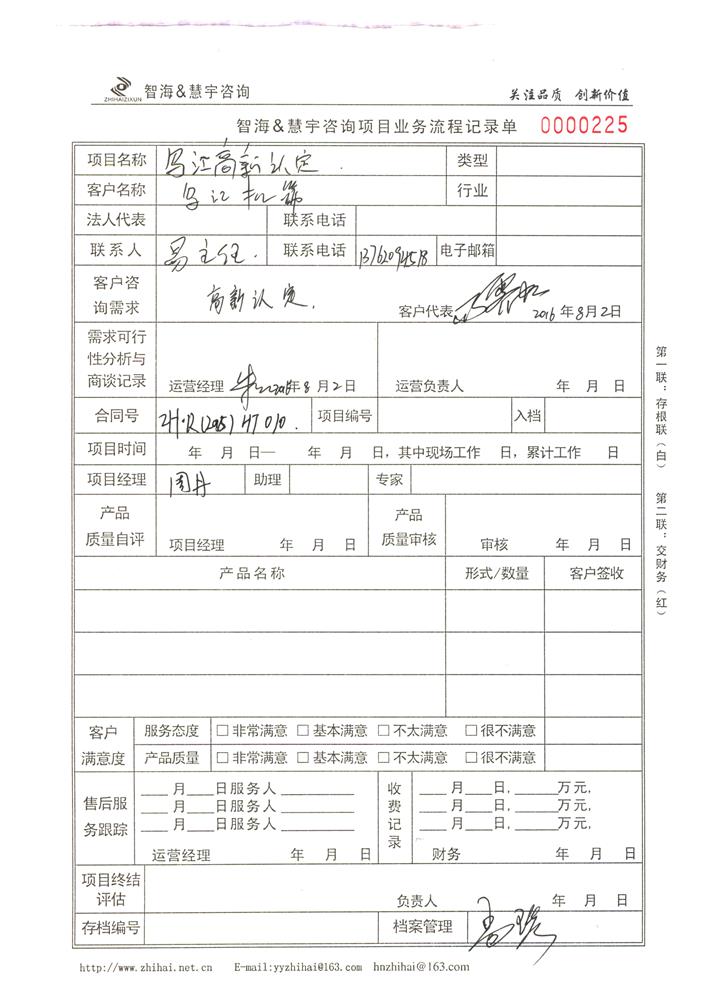 ZHIHAIZIXUN 智海&慧宇咨询 关注品质 创新价值
智海&慧宇咨询项目业务流程记录单 0000225
项目名称 乌江高新认定. 类型
客户名称 乌江机器 行业
法人代表 联系电话
联系人 易主任. 联系电话 13762094518 电子邮箱
客户咨询需求 高新认定. 客户代表 2016年8月2日
需求可行性分析与商谈记录 运营经理 年8月2日 运营负责人 年 月 日
合同号 项目编号 入档
项目时间 年 月 日— 年 月 日,其中现场工作 日,累计工作 日
项目经理 周丹 助理 专家
产品质量自评 项目经理 年 月 日 产品质量审核 审核 年 月 日
产品名称 形式/数量 客户签收
客户满意度 服务态度 □非常满意 □基本满意 □不太满意 □很不满意
产品质量 □非常满意 □基本满意 □不太满意 □很不满意
售后服务跟踪 ___月___日服务人________ 收费记录 ___月___日,____万元,
___月___日服务人________ ___月___日,____万元,
___月___日服务人________ ___月___日,____万元,
运营经理 年 月 日 财务 年 月 日
项目终结评估 负责人 年 月 日
存档编号 档案管理
http://www.zhihai.net.cn E-mail:yyzhihai@163.com hnzhihai@163.com
第一联:存根联(白) 第二联:交财务(红)